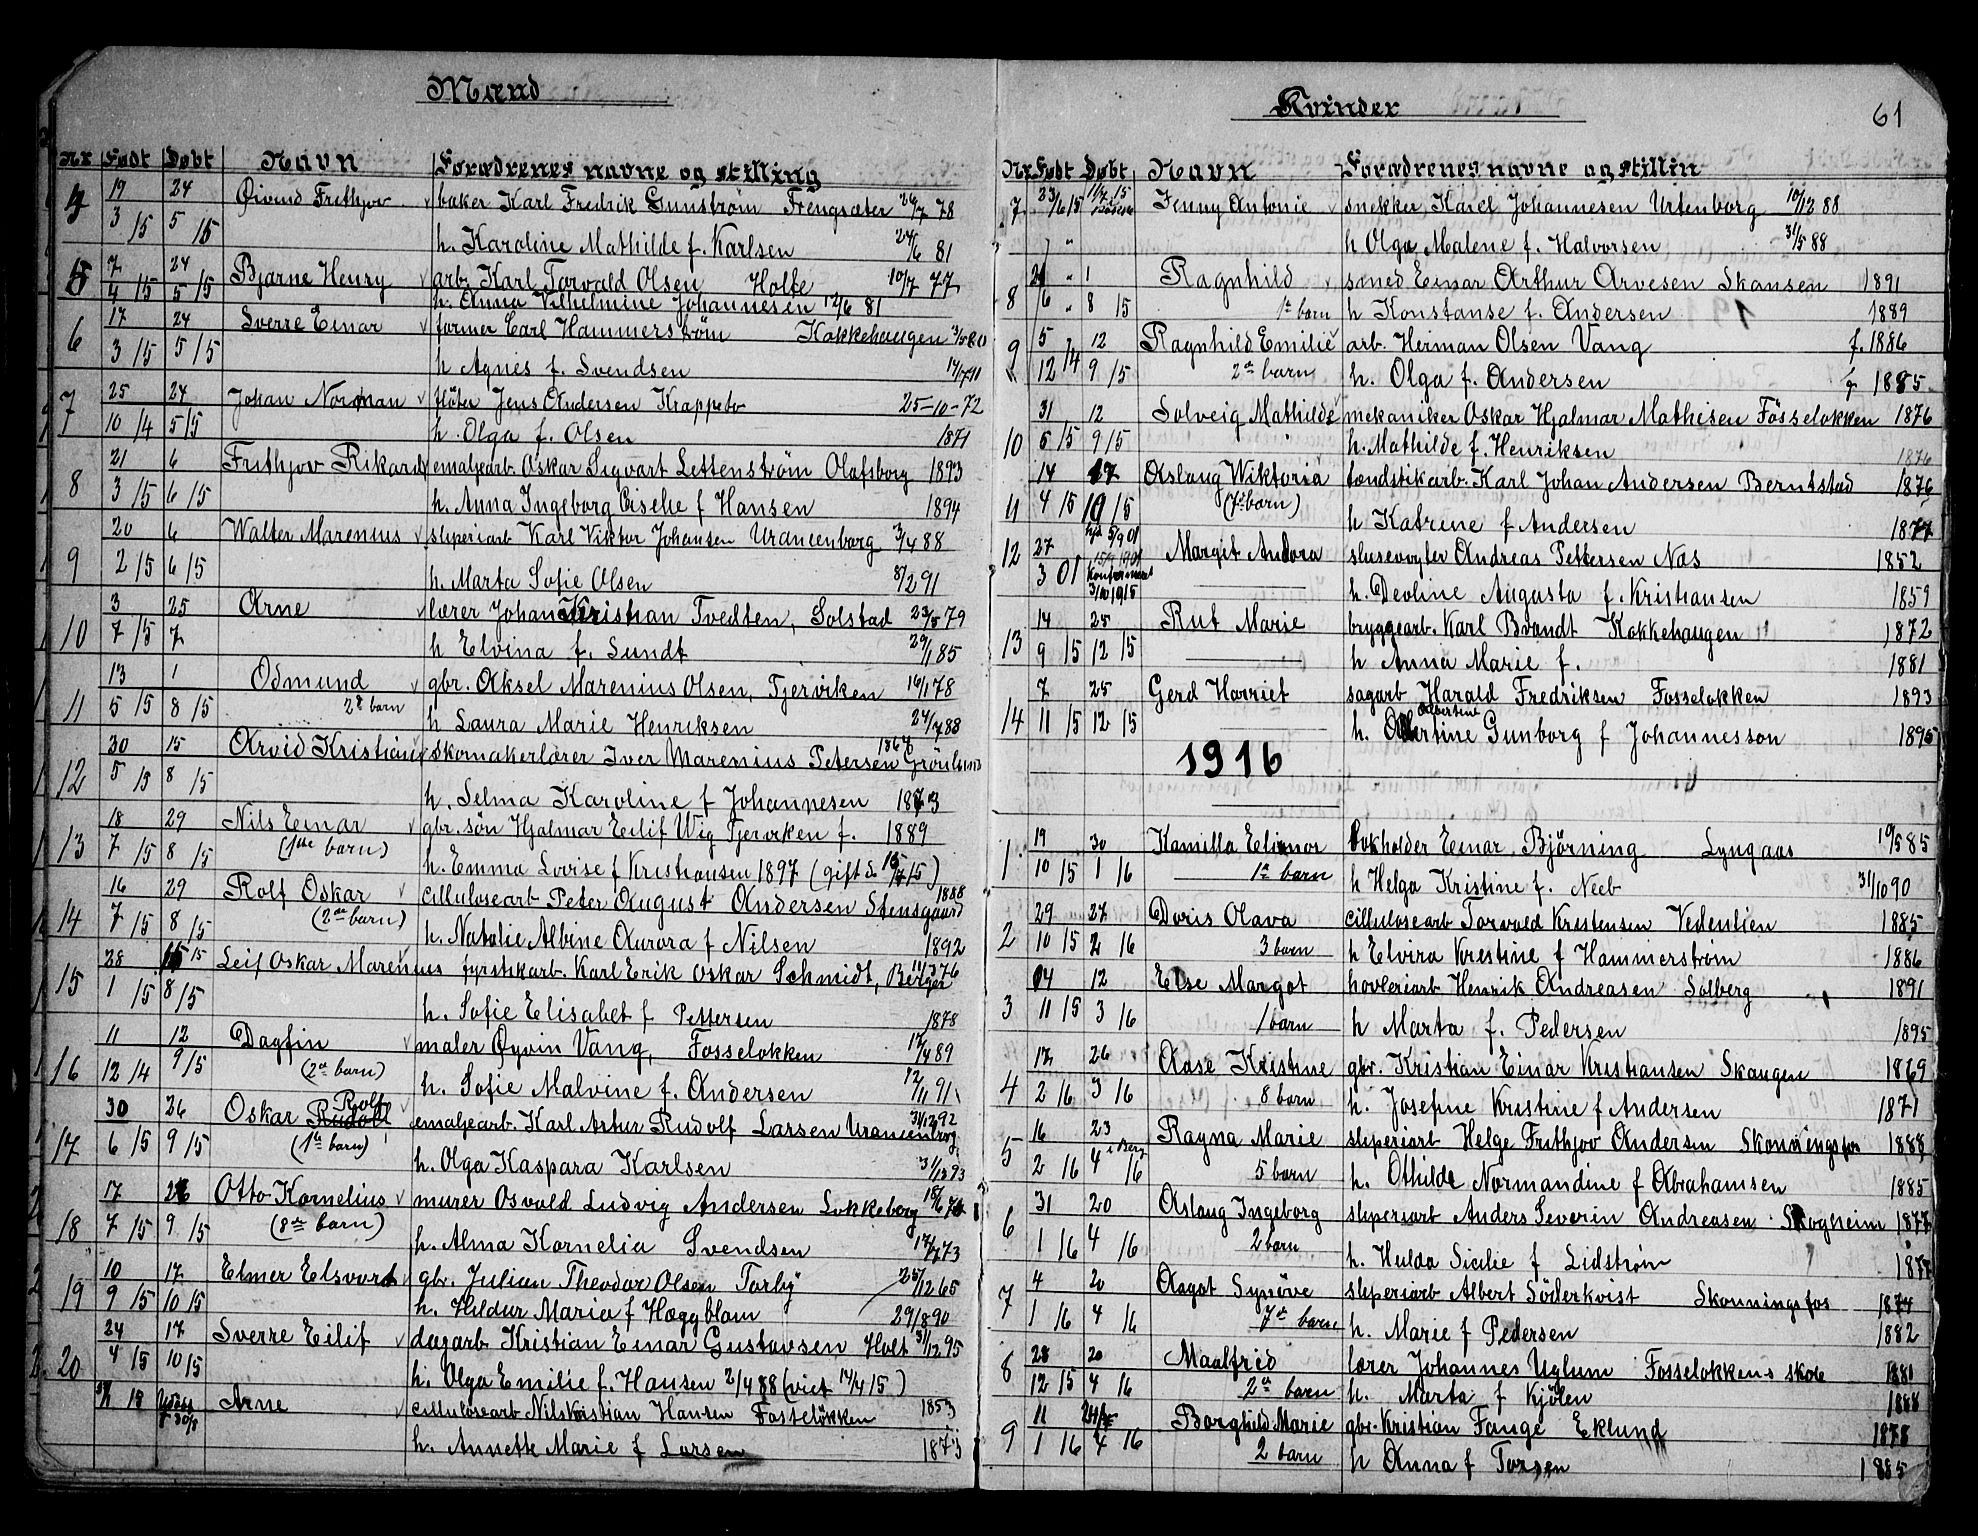 Mænd
Nr Født Døbt Navn Forædrenes navne og stilling
4 19 24 Øivind Frithjov bøker Karl Fredrik Gunstrøm Frengsæter 26/7 78
3/15 5/15 h. Karoline Mathilde f. Karlsen 24/6 81
5 7 24 Bjarne Henry arb. Karl Torvald Olsen Holte 10/7 77
4/15 5/15 h. Anna Vilhelmine Johannesen 12/6 81
6 17 24 Sverre Einar former Carl Hammerstrøm Kokkehaugen 3/5 80
3/15 5/15 h Agnes f. Svendsen
7 25 24 Johan Norman fløter Jens Andersen Krappeto 25-10-72
10/14 5/15 h. Olga f. Olsen 1871
8 21 6 Frithjov Rikard emaljearb. Oskar Sigvart Lettenstrøm Olafsborg 1893
3/15 6/15 h. Anna Ingeborg Cisilie f Hansen 1894
9 20 6 Walter Marenius sliperiarb Karl Viktor Johansen Uranienborg 3/4 88
2/15 6/15 h. Marta Sofie Olsen 8/2 91
10 3 25 Arne lærer Johan Kristian Tvedten, Solstad 23/5 79
7/15 7 h Elvina f. Sundt 29/1 85
11 13 1 Odmund gbr. Aksel Marenius Olsen, Tjerviken 16/1 78
5/15 8/15 2det barn h Laura Marie Henriksen 24/7 88
12 30 15 Arvid Kristian skomakerlærer Iver Marenius Petersen 1867 Grönlund
5/15 8/15 h. Selma Karoline f Johannesen 1873
13 18 29 Nils Einar gbr. søn Hjalmar Eilif Wig Tjerviken f. 1889
7/15 8/15 (1ste barn) h. Emma Lovise f Kristiansen 1897 (gift d. 15/7 15)
14 16 29 Rolf Oskar cilluloseearb Peter August Andersen Stensgaard 1888
7/15 8/15 (2det barn) h. Natalie Albine Aurora f Nilsen 1892
15 28 15 15 Leif Oskar Marenius fyrstikarb. Karl Erik Oskar Schmidt, Berger 11/3 76
1/15 8/15 h. Sofie Elisabet f Pettersen 1878
16 11 12 Dagfin maler Øyvin Vang, Fosseløkken 17/4 89
12/14 9/15 (2det barn) h. Sofie Malvine f. Andersen 12/11 91
17 30 26 Oskar Rudolf Rolf emaljearb. Karl Artur Rudolf Larsen Uranienborg 31/12 92
6/15 9/15 (1ste barn) h. Olga Kaspara Karlsen 31/12 93
18 17 26 Otto Kornelius murer Osvald Ludvig Andersen Løkkeberg
7/15 9/15 (8de barn) h. Alma Kornelia Svendsen 17/7 73
19 10 17 Elmer Elsvort gbr. Julian Theodor Olsen Torby 25/12 65
9/15 10/15 h. Hildur Maria f Hæggblom 29/8 90
20 24 17 Sverre Eilif dagarb Kristian Einar Gustavsen Holt 31/12 95
4/15 10/15 h. Olga Emilie f. Hansen 2/4 88 (viet 14/4 15)
Arne cilluloseearb Nils Kristian Hansen Fosseløkken 1853
h. Annette Marie f Larsen 1873
Kvinder 61
Nr Født Døbt Navn Forædrenes navne og stillin
7 23/6 15 11/7 15 Jenny Antonie snekker Karel Johannesen Urtenborg 10/12 88
h Olga Malene f. Halvorsen 31/5 88
8 21 " 1 Ragnhild smed Einar Arthur Arvesen Skansen 1891
6 " 8 15 1ste barn h Konstanse f. Andersen 1889
9 5 12 Ragnhild Emilie arb. Herman Olsen Vang f. 1886
12 14 9/15 2det barn h. Olga f. Andersen f 1885
10 31 12 Solveig Mathilde mekaniker Oskar Hjalmar Mathisen Fösseløkken 1876
5/15 9/15 h. Mathilde f. Henriksen 1876
11 14 17 Aslaug Wiktoria tændstikarb. Karl Johan Andersen Berntstad 1876
4/15 10/15 (7de barn) h Katrine f Andersen 1877
12 27 hjd 5/9 01 Margit Andora slusevogter Andreas Pettersen Næs 1852
3 01 15/9 1901 konfirmert 3/10 1915 h. Devline Augusta f. Kristiansen 1859
13 14 25 Rut Marie bryggearb. Karl Brandt Kokkehaugen 1872
9/15 12/15 h Anna Marie f. 1881
14 7 25 Gerd Harriet sagarb Harald Fredriksen Fosseløkken 1893
11/15 12/15 h. Albertine Gunborg f Johannesson 1895
1916
1 19 30 Kamilla Elinor bokholder Einar Bjørning Lyngaas 19/5 85
10/15 1/16 1ste barn h Helga Kristine f. Neeb 31/10 90
2 29 27 Doris Olava cilluloseearb Torvald Kristensen Vedenlien 1885
10 15 2 16 3 barn h Elvira Kristine f Hammerstrøm 1886
3 04 12 Else Margot høvleriarb Henrik Andreasen Solberg 1891
11/15 3/16 1 barn h Marta f. Pedersen 1895
4 17 26 Aase Kristine gbr. Kristian Einar Kristiansen Skaugen 1869
2 16 3 16 8 barn h. Josefine Kristine f Andersen 1871
5 16 23 Ragna Marie sliperiarb Helge Frithjov Andersen Skonningsfos 1888
2 16 4 i Berg 16 5 barn h. Othilde Normandine f Abrahamsen 1885
6 31 20 Aslaug Ingeborg sliperiarb Anders Severin Andreasen Skogheim 1877
1 16 4 16 2 barn h. Hulda Sicilie f Lidstrøm
7 4 20 Aagot Synöve sliperiarb Albert Söderkvist Skonningsfos 1874
1 16 4 16 7de barn h. Marie f Pedersen 1882
8 28 20 Maalfrid lærer Johannes Uglum Fosseløkkens skole 1881
12 15 4 16 2det barn h. Marta f Kjölen 1888
9 11 24/4 Borghild Marie gbr. Kristian Fange Eklund 1878
1 16 4 16 2 barn h Anna f Torsen 1885